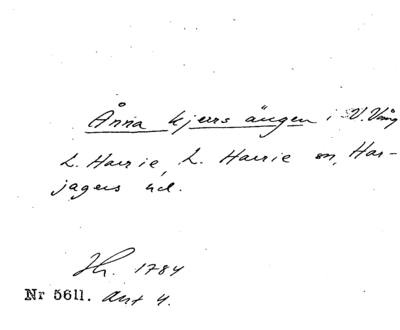 Ånna kjerrs ängen i V. Vång
L. Harrie, L. Harrie sn, Har-
jagers hd.
Hr. 1784
Nr 5611. art 4.